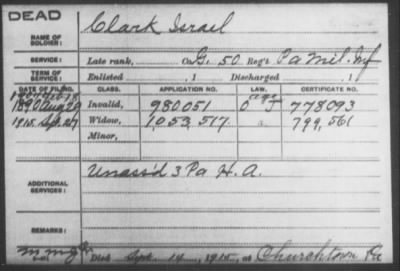 DEAD
NAME OF SOLDIER: Clark Israel
SERVICE: Late rank, Co G. 50 Reg't Pa Mil. Inf
TERM OF SERVICE: Enlisted , 1 Discharged , 1
DATE OF FILING. CLASS. APPLICATION NO. LAW. CERTIFICATE NO.
1890 Aug 29 Invalid, 980051 778093
1915. Sep. 27 Widow, 1,053,517. 799,561
Minor,
ADDITIONAL SERVICES: Unass'd 3 Pa H. A.
REMARKS:
Died Sept. 14, 1915, at Churchtown Pa